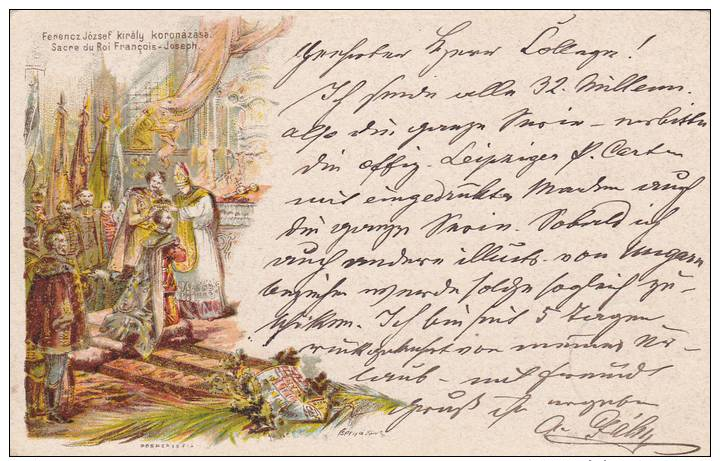 Ferencz József király koronázása.
Sacre du Roi François-Joseph.
Geehrter Herr College!
Ich sende alle 32. Millenn.
also die ganze Serie – erbitte
die offiz. Leipziger P. Carten
mit eingedrukten Marken auch
die ganze Serie. Sobald ich
auch andere illustr. von Ungarn
beziehe werde solche sogleich zu-
schikken. Ich bin seit 5 Tagen
rückgekehrt von meinem Ur-
laub – mit freundl.
Gruß ihr ergeben
A.